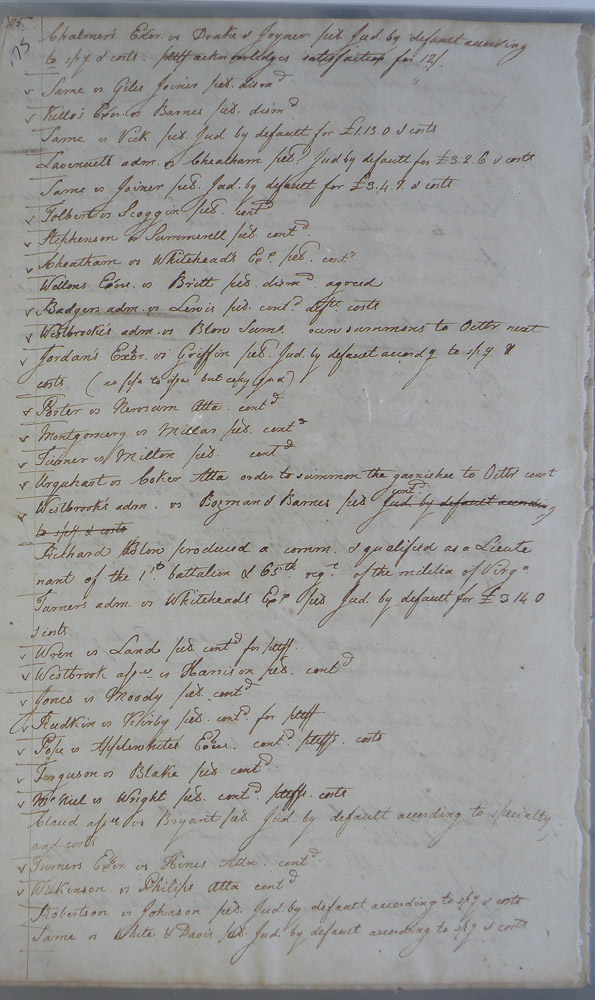 175
Chalmers Exer. vs Drake & Joyner pet. Jud. by default according
to spy & costs. pltff acknowledges satisfaction for 12/.
Same vs Giles Joiner pet. dismd
Kello's Exer. vs Barnes pet. dismd
Same vs Vick pet. Jud. by default for £1.13.0 & costs
adm. vs Cheatham petn. Jud by default for £3.2.6 & costs
Same vs Joiner pet. Jud. by default for £3.4.7. & costs
Tolbert vs Scoggin pet. contd
Stephenson vs Summerell pet. contd.
Cheatham vs Whitehead's Exr. pet. contd
Wellons Exer. vs Britt pet. dismd. agreed
Badgers adm. vs Lewis pet. contd costs
Westbrook's adm. vs Blow Same. summons to Octr next
Jordan's Exer. vs Griffin pet. Jud. by default accordg to spy &
costs (no but copy
Porter vs Newsum Atta. contd
Montgomery vs Millar pet. contd
Turner vs Milton pet. contd
Urquhart vs Coker Atta order to summon the garnishee to Octr court
contd.
Westbrook's adm. vs Bozman & Barnes pet Jud. by default according
to spy & costs
Richard Blow produced a comm. & qualified as a Lieute
nant of the 1st battalion & 65th regt. of the militia of Virga
Turners adm. vs Whitehead's Exr pet Jud. by default for £3.14.0
& costs
Wren vs Land pet. contd for pltff.
Westbrook asse vs Harrison pet. contd
Jones vs Moody pet. contd
Rudkin vs Kirby pet. contd. for pltff
Pope vs Applewhite's Exers. contd. pltffs. costs
Ferguson vs Blake pet contd.
McNiel vs Wright pet. contd. pltffs. costs
Claud asse vs Bryant pet Jud. by default according to specialty
and costs
Turners Exer vs Hines Atta. contd.
Wilkinson vs Philips Atta contd
Robertson vs Johnson pet. Jud. by default according to spy & costs
Same vs White & Davis pet. Jud. by default according to spy & costs